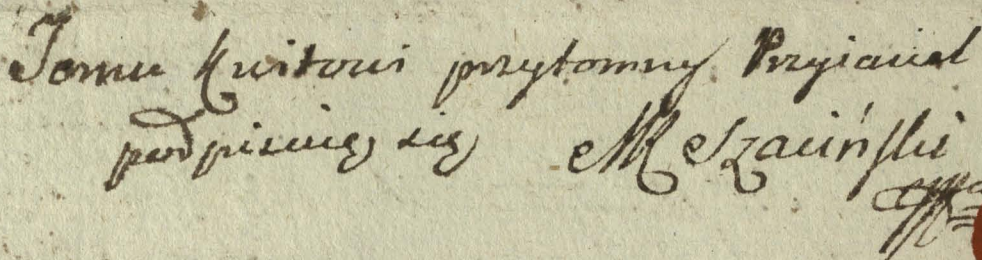 Temu Kwitowi przytomny Przyiaciel
podpisuię się MKeszaciński